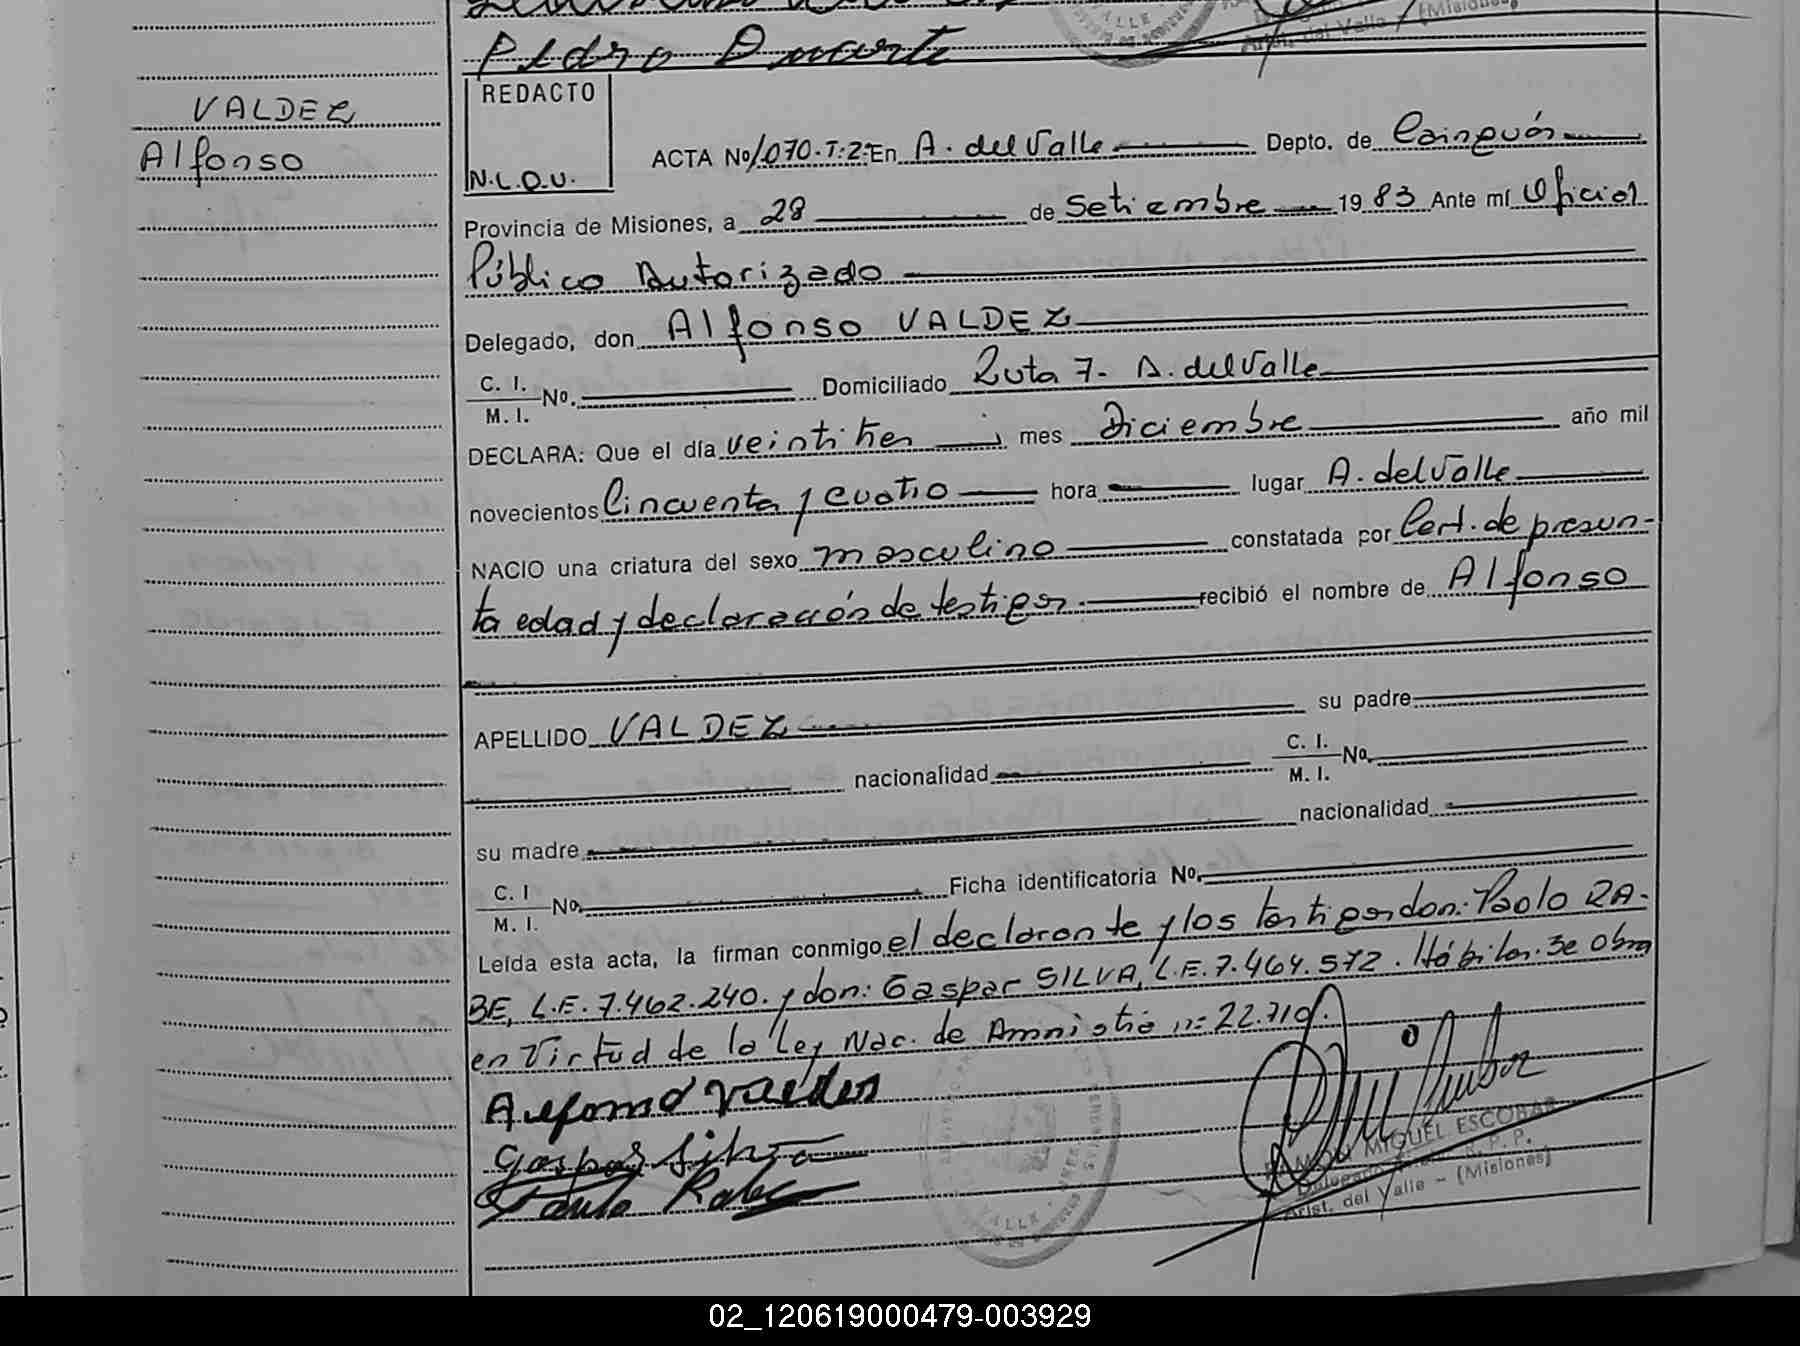 Pedro Duarte
VALDEZ
Alfonso
REDACTO
N.L.D.U.
ACTA Nº 1070.T:2: En A. del Valle Depto. de Cainguás
Provincia de Misiones, a 28 de Setiembre 19 83 Ante mí Oficial
Público Autorizado
Delegado, don Alfonso VALDEZ
C. I. M. I. Nº. Domiciliado Ruta 7. A. del Valle
DECLARA: Que el día veintitres mes Diciembre año mil
novecientos Cincuenta y cuatro hora lugar A. del Valle
NACIO una criatura del sexo masculino constatada por Cert. de presun-
ta edad y declaración de testigos. recibió el nombre de Alfonso
APELLIDO VALDEZ su padre
nacionalidad C. I. M. I. Nº.
su madre nacionalidad
C. I M. I. Nº. Ficha identificatoria Nº.
Leída esta acta, la firman conmigo el declarante y los testigos don: Paolo RA-
BE, L.E. 7.462.240. y don: Gaspar SILVA, L.E. 7.464.572. Hábiles. Se obra
en Virtud de la Ley Nac. de Amnistia nº 22.710.
Alfonso Valdez
Gaspar Silva
Paulo Rabe
RAMON MIGUEL ESCOBAR
Delegado R. P. P.
Arist. del Valle - (Misiones)
02_120619000479-003929